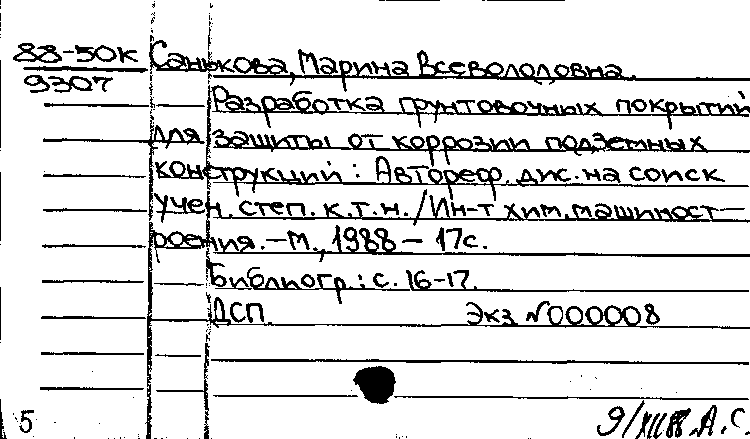 88-50к Санькова, Марина Всеволодовна.
9307
Разработка грунтовочных покрытий
для защиты от коррозии подземных
конструкций : Автореф. дис. на соиск
учен. степ. к.т.н. / Ин-т хим. машиност-
роения. – М., 1988 – 17с.
Библиогр.: с. 16-17.
ДСП. Экз №000008
5 9/XII88 А.С.